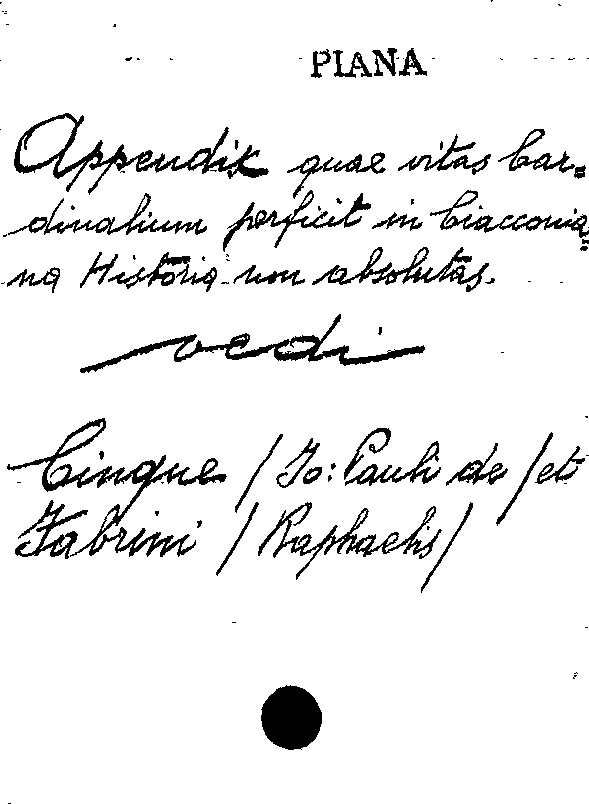 PIANA
Appendix quae vitas Car=
dinalium perficit in Ciacconia=
na Historia non absolutas.
vedi
Cinque / Jo: Pauli de / et
Fabrini / Raphaelis /